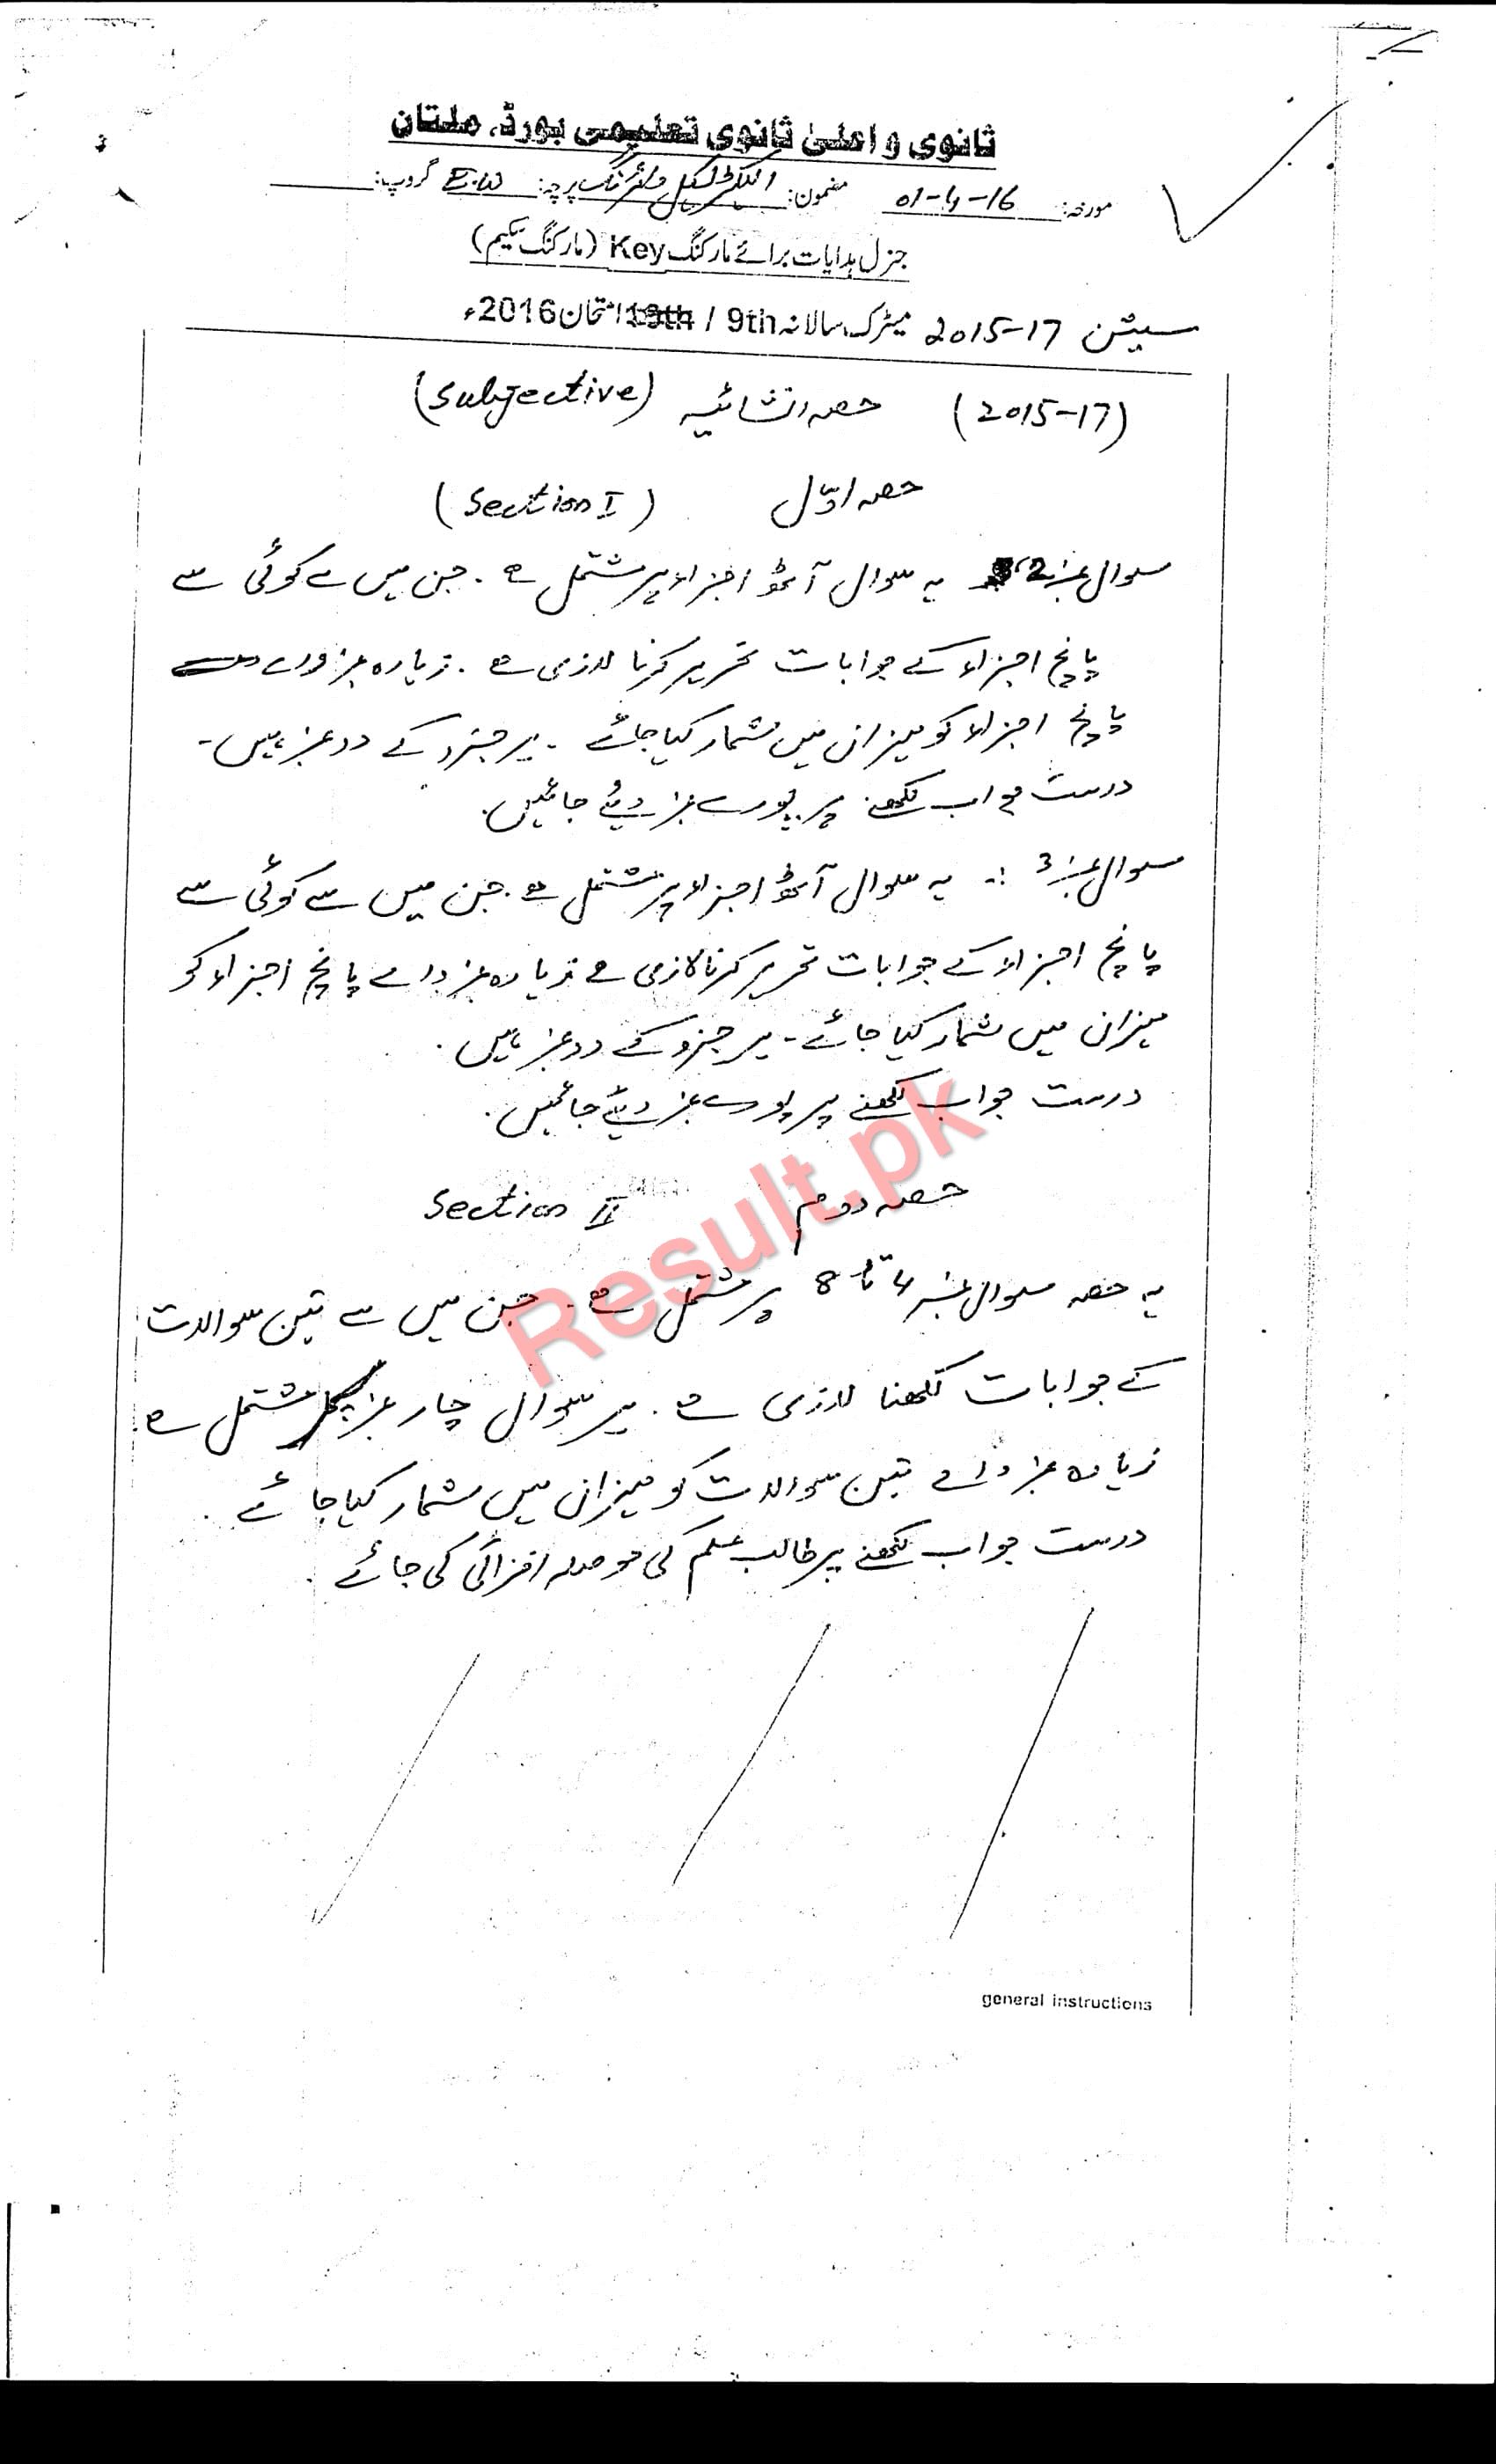 ثانوی و اعلیٰ ثانوی تعلیمی بورڈ، ملتان
مورخہ: 01-4-16 مضمون: الیکٹریکل وائرنگ پرچہ: E.W گروپ:
جنرل ہدایات برائے مارکنگ Key (مارکنگ سکیم)
سیشن 2015-17 میٹرک سالانہ 9th / 10th امتحان 2016ء
(2015-17) حصہ انشائیہ (Subjective)
حصہ اوّل (Section I)
سوال نمبر 2 یہ سوال آٹھ اجزاء پر مشتمل ہے۔ جن میں سے کوئی سے
پانچ اجزاء کے جوابات تحریر کرنا لازمی ہے۔ زیادہ نمبروں
پانچ اجزاء کو میزان میں شمار کیا جائے۔ ہر جزو کے دو نمبر ہیں۔
درست جواب لکھنے پر پورے نمبر دیئے جائیں۔
سوال نمبر 3 :۔ یہ سوال آٹھ اجزاء پر مشتمل ہے۔ جن میں سے کوئی سے
پانچ اجزاء کے جوابات تحریر کرنا لازمی ہے زیادہ نمبر والے پانچ اجزاء کو
میزان میں شمار کیا جائے۔ ہر جزو کے دو نمبر ہیں۔
درست جواب لکھنے پر پورے نمبر دیئے جائیں۔
حصہ دوم Section II
یہ حصہ سوال نمبر 4 تا 8 پر مشتمل ہے۔ جن میں سے تین سوالات
کے جوابات لکھنا لازمی ہے۔ ہر سوال چار نمبر پر مشتمل ہے۔
زیادہ نمبر والے تین سوالات کو میزان میں شمار کیا جائے۔
درست جواب لکھنے پر طالب علم کی حوصلہ افزائی کی جائے۔
Result.pk
general instructions